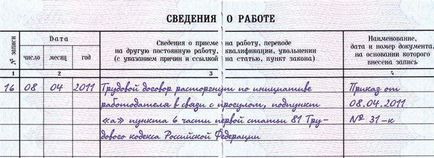 СВЕДЕНИЯ О РАБОТЕ
№ записи
Дата
Сведения о приеме на работу, переводе
на другую постоянную работу, квалификации, увольнении
(с указанием причин и ссылкой на статью, пункт закона)
Наименование,
дата и номер документа,
на основании которого
внесена запись
число месяц год
1 2 3 4
16 08 04 2011 Трудовой договор расторгнут по инициативе Приказ от
работодателя в связи с прогулом, подпункт 08.04.2011
«а» пункта 6 части первой статьи 81 Тру- № 31-к
дового кодекса Российской Федерации